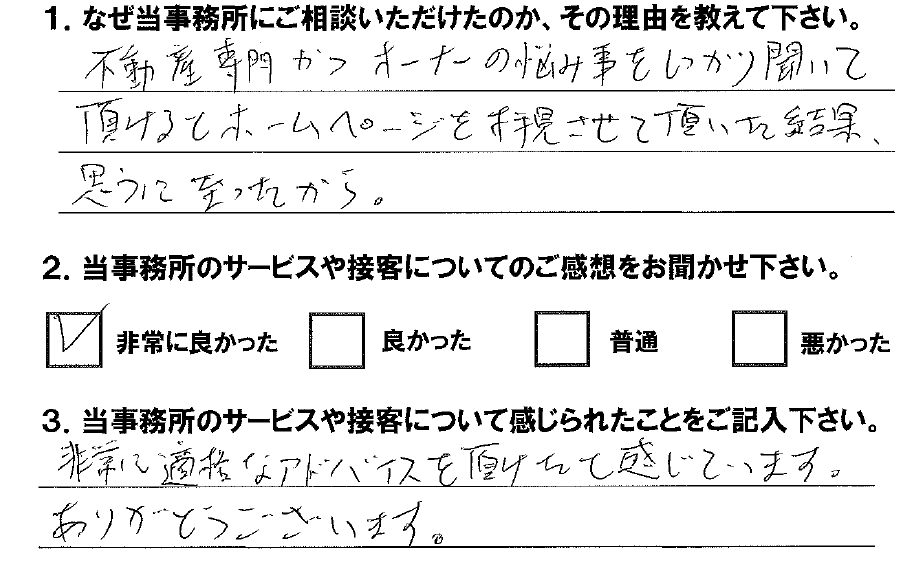 1. なぜ当事務所にご相談いただけたのか、その理由を教えて下さい。
不動産専門かつオーナーの悩み事をしっかり聞いて
頂けるとホームページを拝見させて頂いた結果、
思うに至ったから。
2. 当事務所のサービスや接客についてのご感想をお聞かせ下さい。
非常に良かった 良かった 普通 悪かった
3. 当事務所のサービスや接客について感じられたことをご記入下さい。
非常に適格なアドバイスを頂けたと感じています。
ありがとうございます。